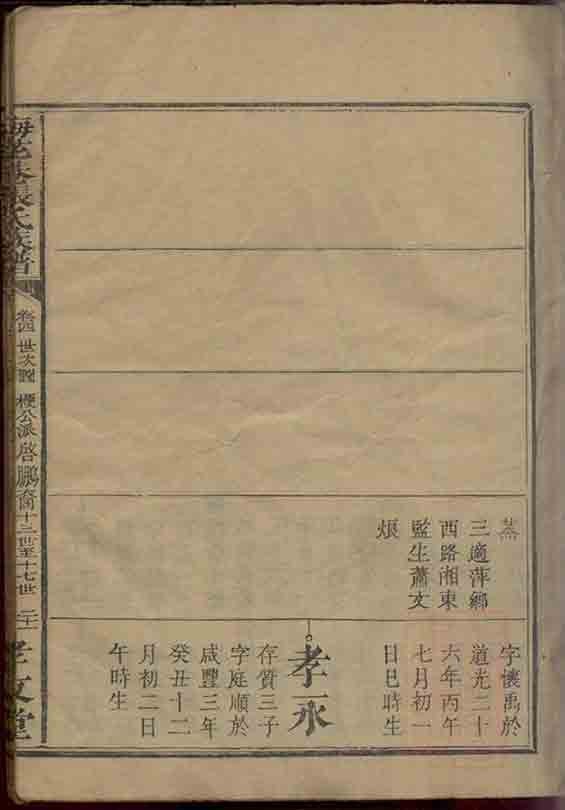 蒸
三適萍鄉
西路湘東
監生蕭文
烺
字懷禹於
道光二十
六年丙午
七月初一
日巳時生
孝永
存質三子
字庭順於
咸豐三年
癸丑十二
月初二日
午時生
張氏族譜
卷四 世次 公派啓鵬裔十三世至十七世
孝友堂